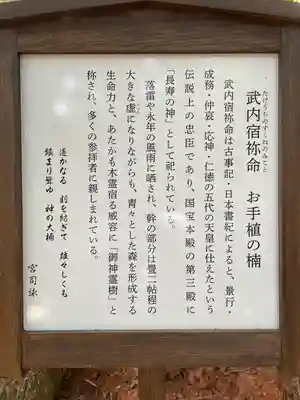 武内宿祢命　お手植の楠
たけうちのすくねのみこと
武内宿祢命は古事記・日本書紀によると、景行・
成務・仲哀・応神・仁徳の五代の天皇に仕えたという
伝説上の忠臣であり、国宝本殿の第三殿に
「長寿の神」として祀られている。
落雷や永年の風雨に晒され、幹の部分は畳二帖程の
大きな虚になりながらも、青々とした森を形成する
生命力と、あたかも木霊宿る威容に「御神霊樹」と
称され、多くの参拝者に親しまれている。
遥かなる 刻を紡ぎて 雄々しくも
鎮まり聳ゆ 神の大楠
宮司詠